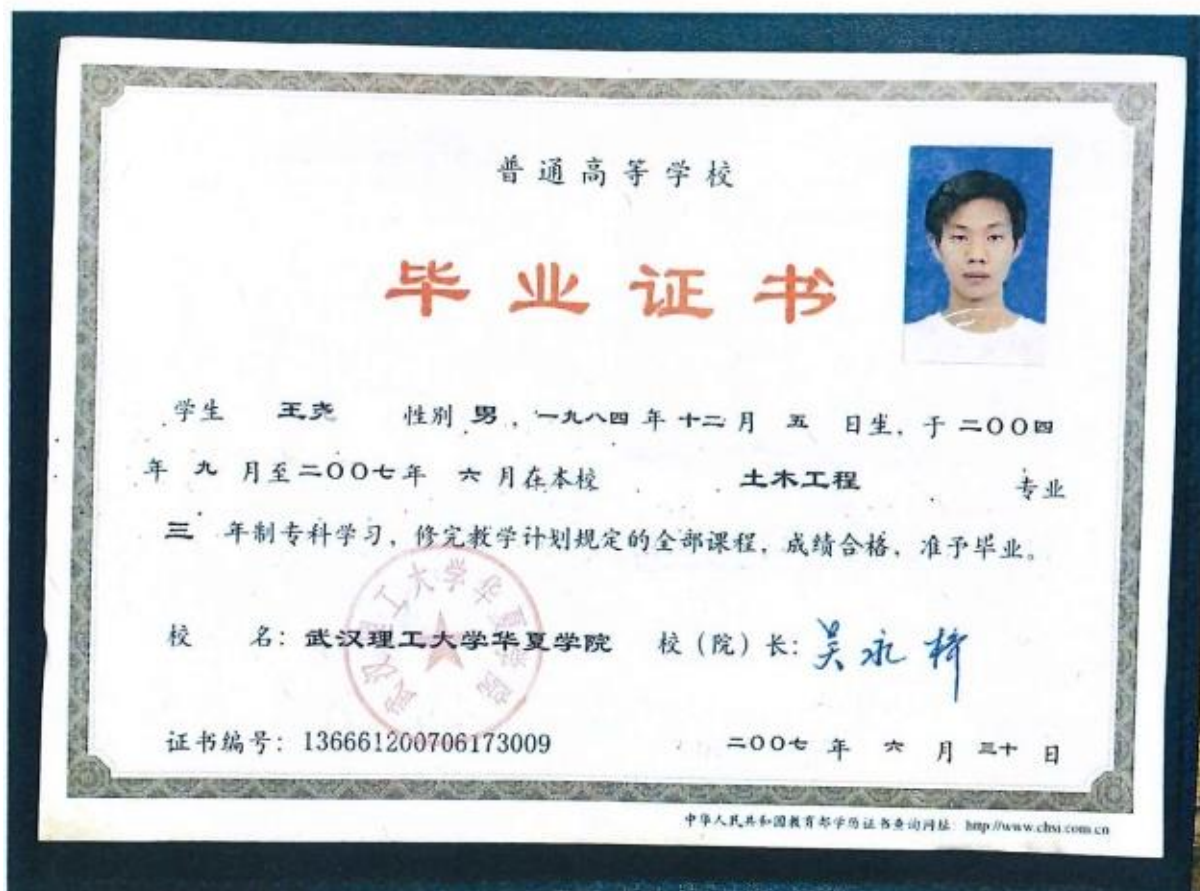 普通高等学校
毕业证书
学生 王尧 性别 男，一九八四年十二月 五 日生，于二〇〇四
年 九 月至二〇〇七年 六 月在本校 土木工程 专业
三 年制专科学习，修完教学计划规定的全部课程，成绩合格，准予毕业。
武汉理工大学华夏学院
校 名：武汉理工大学华夏学院 校（院）长：吴永桥
证书编号：136661200706173009 二〇〇七 年 六 月 三十 日
中华人民共和国教育部学历证书查询网址：http://www.chsi.com.cn